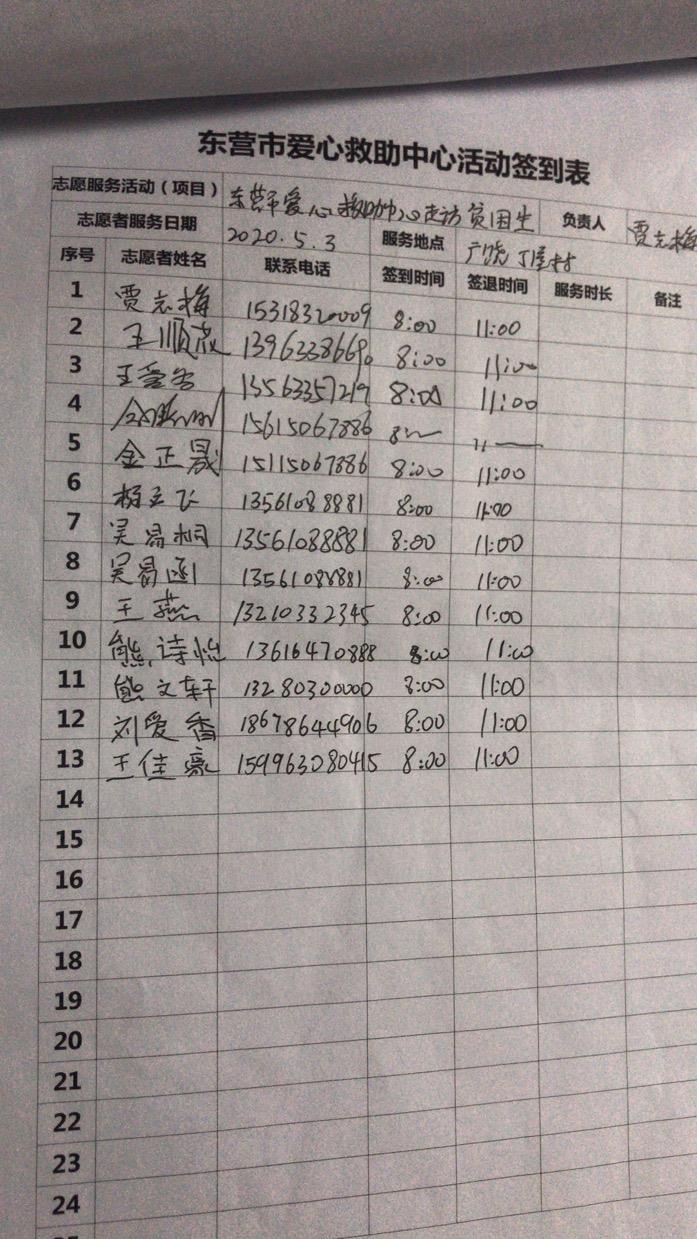 东营市爱心救助中心活动签到表
志愿服务活动（项目） 东营市爱心救助中心走访贫困生 负责人 贾志梅
志愿者服务日期 2020.5.3 服务地点 广饶
序号 志愿者姓名 联系电话 签到时间 签退时间 服务时长 备注
1 贾志梅 15318320009 8:00 11:00
2 王顺 8:00 11:00
3 王爱 13563357219 8:00 11:00
4 15615067886
5 金正晟 15115067886 8:00 11:00
6 杨立飞 13561088881 8:00 11:00
7 吴易桐 13561088881 8:00 11:00
8 吴易函 13561088881 8:00 11:00
9 王燕 13210332345 8:00 11:00
10 熊诗怡 13616470888 8:00 11:00
11 熊文轩 13280300000 8:00 11:00
12 刘爱香 18678644906 8:00 11:00
13 王佳豪 159963080415 8:00 11:00
14
15
16
17
18
19
20
21
22
23
24